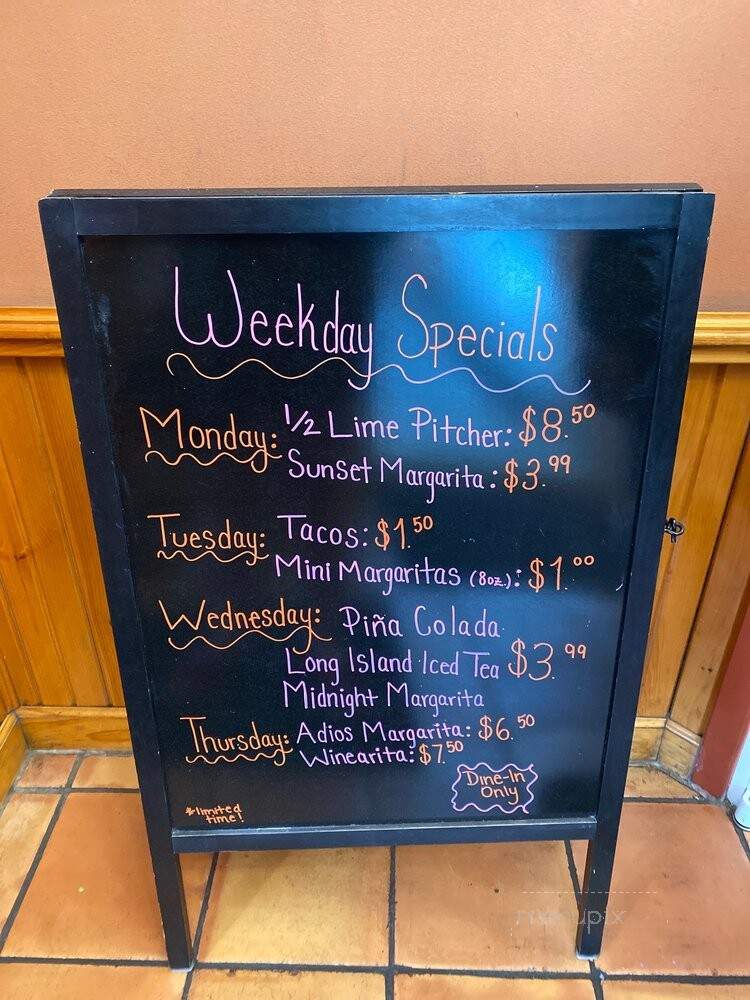 Weekday Specials
Monday: 1/2 Lime Pitcher: $8.50
Sunset Margarita: $3.99
Tuesday: Tacos: $1.50
Mini Margaritas (8oz.): $1.00
Wednesday: Piña Colada
Long Island Iced Tea $3.99
Midnight Margarita
Thursday: Adios Margarita: $6.50
Winearita: $7.50
Dine-In
Only
*limited
time!
menupix